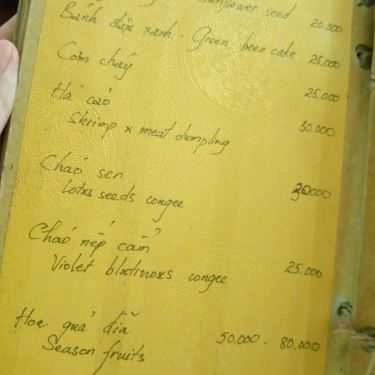 sunflower seed 20.000
Bánh đậu xanh - Green bean cake 25.000
Cơm cháy 25.000
Há cảo
Shrimp x meat dumpling 30.000
Cháo sen
Lotus seeds congee 30.000
Cháo nếp cẩm
Violet glutinous congee 25.000
Hoa quả đĩa
Season fruits 50.000 - 80.000